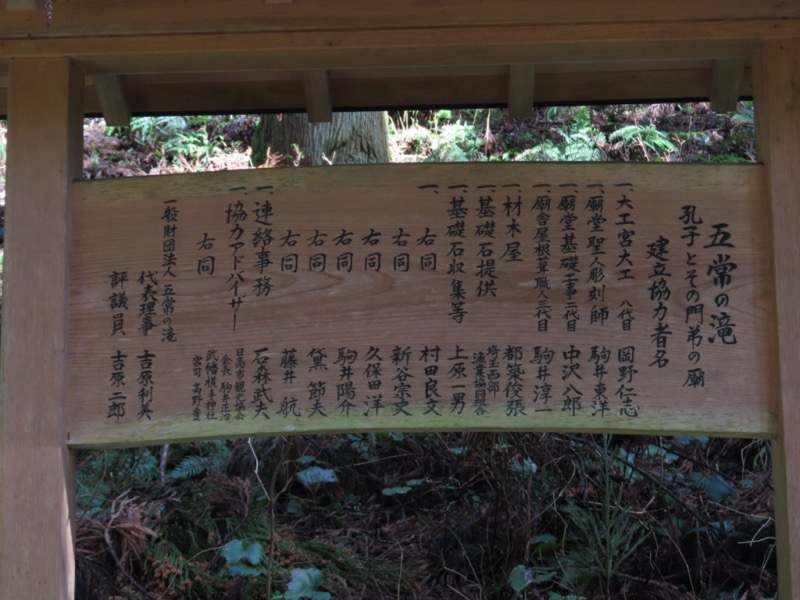 五常の滝
孔子とその門弟の廟
建立協力者名
一、大工宮大工 八代目 岡野仁志
一、廟堂聖人彫刻師 駒井東洋
一、廟堂基礎工事二代目 中沢八郎
一、廟舎屋根葺職人三代目 駒井淳一
一、材木屋 都築俊張
一、基礎石提供 埼玉西部漁業協同組合
一、基礎石収集等 上原一男
一、右同 村田良文
右同 新谷宗丈
右同 久保田洋
右同 駒井陽介
右同 黛節夫
右同 藤井航
一、連絡事務 石森武夫
一、協力アドバイザー 日高市観光協会 会長 駒井正治
右同 武幡横手神社 宮司 高野
一般財団法人 五常の滝
代表理事 吉原利英
評議員 吉原二郎